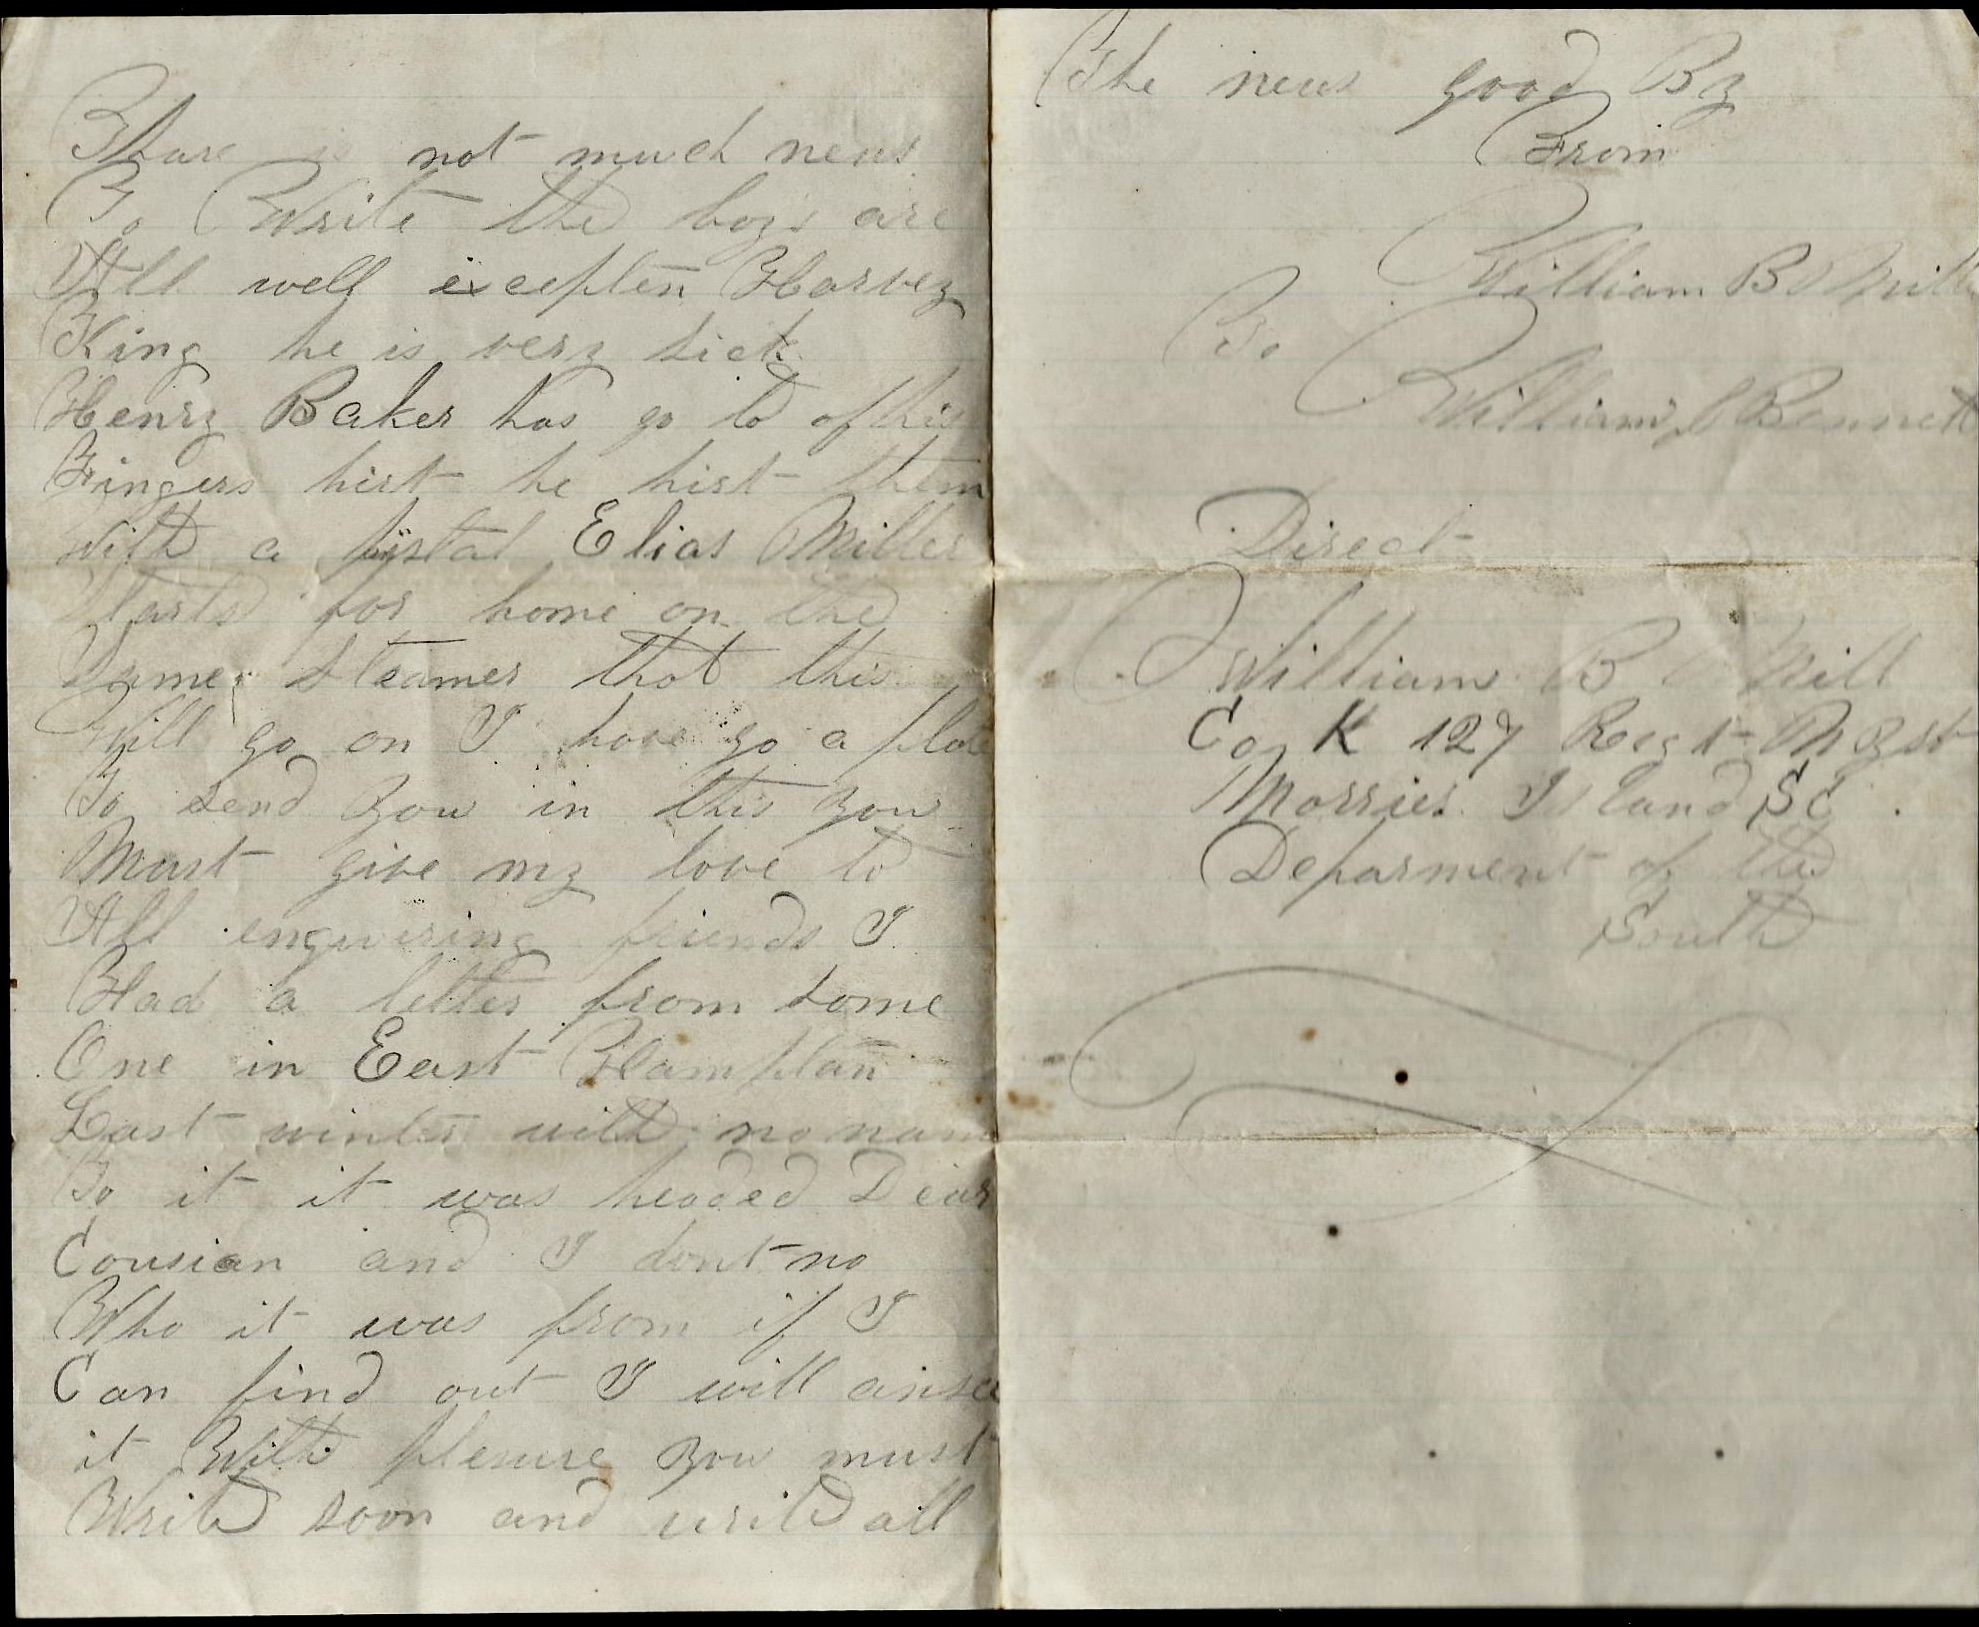 Thare is not much news
To Write the boys are
All well excepten Harvey
King he is very sick
Henry Baker has go to of his
Fingers hirt he hirt them
with a pystal Elias Miller
Starts for home on the
Same Steamer that this
Will go on I have go a
To send you in this you
Must give my love to
All enquiring friends I
Had a letter from some
One in East Hamptan
Last winter with no nam
To it it was headed Dear
Cousian and I dont no
Who it was from if I
Can find out I will
it With plesure you must
Write soon and write all
The news good By
From
William B Mill
To
William Bennett
Direct
William B Mill
Co K 127 Regt
Morries Island SC.
Deparment of the
South